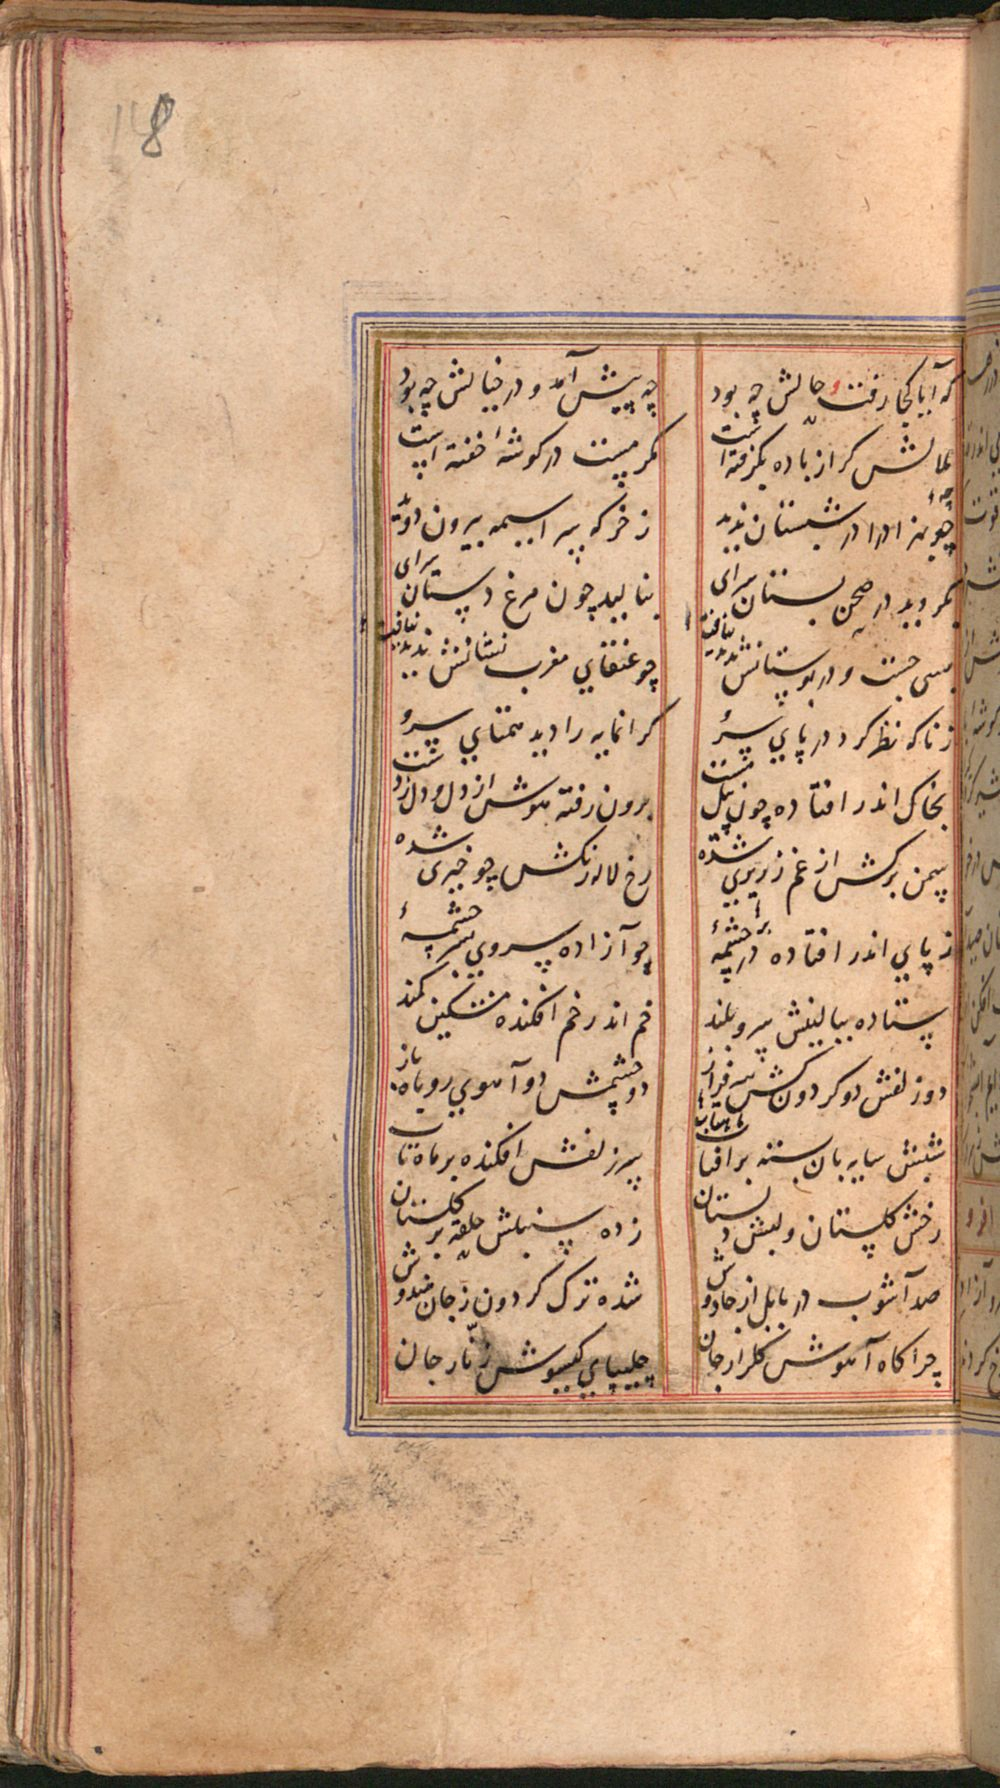 18
که آیا کجا رفت و حالش چه بود
چه پیش آمد و در خیالش چه بود
همانش کز از باده بگرفته است
مکر مست در کوشهٔ خفته است
چو شهزاده را در شبستان ندید
ز خرکه سراسیمه بیرون دوید
بکردید در صحن بستان سرای
بنالید چون مرغ دستان سرای
بسی جست و در بوستانش نیافت
چو عنقای مغرب نشانش نیافت
ز ناکه نظر کرد در پای سرو
کرانمایه را دید همتای سرو
بخاک اندر افتاده چون پیل مست
برون رفته هوش از دل و دل ز دست
سمن برکش از غم زریری شده
رخ لاله رنکش چو خیری شده
ز پای اندر افتاده در چشمهٔ
چو آزاده سروی بسر چشمهٔ
ستاده ببالینش سرو بلند
خم اندر خم افکنده مشکین کمند
دو زلفش دو کردون کش سرفراز
دو چشمش دو آهوی روباه باز
شبش سایه بان بسته بر افتاب
سر زلفش افکنده بر ماه تاب
رخش کلستان و لبش دلستان
زده سنبلش حلقه بر کلستان
صد آشوب در بابل از جادوش
شده ترک کردون ز جان هندوش
چراکاه آهوش کلزار جان
چلیپای کیسوش زنّار جان